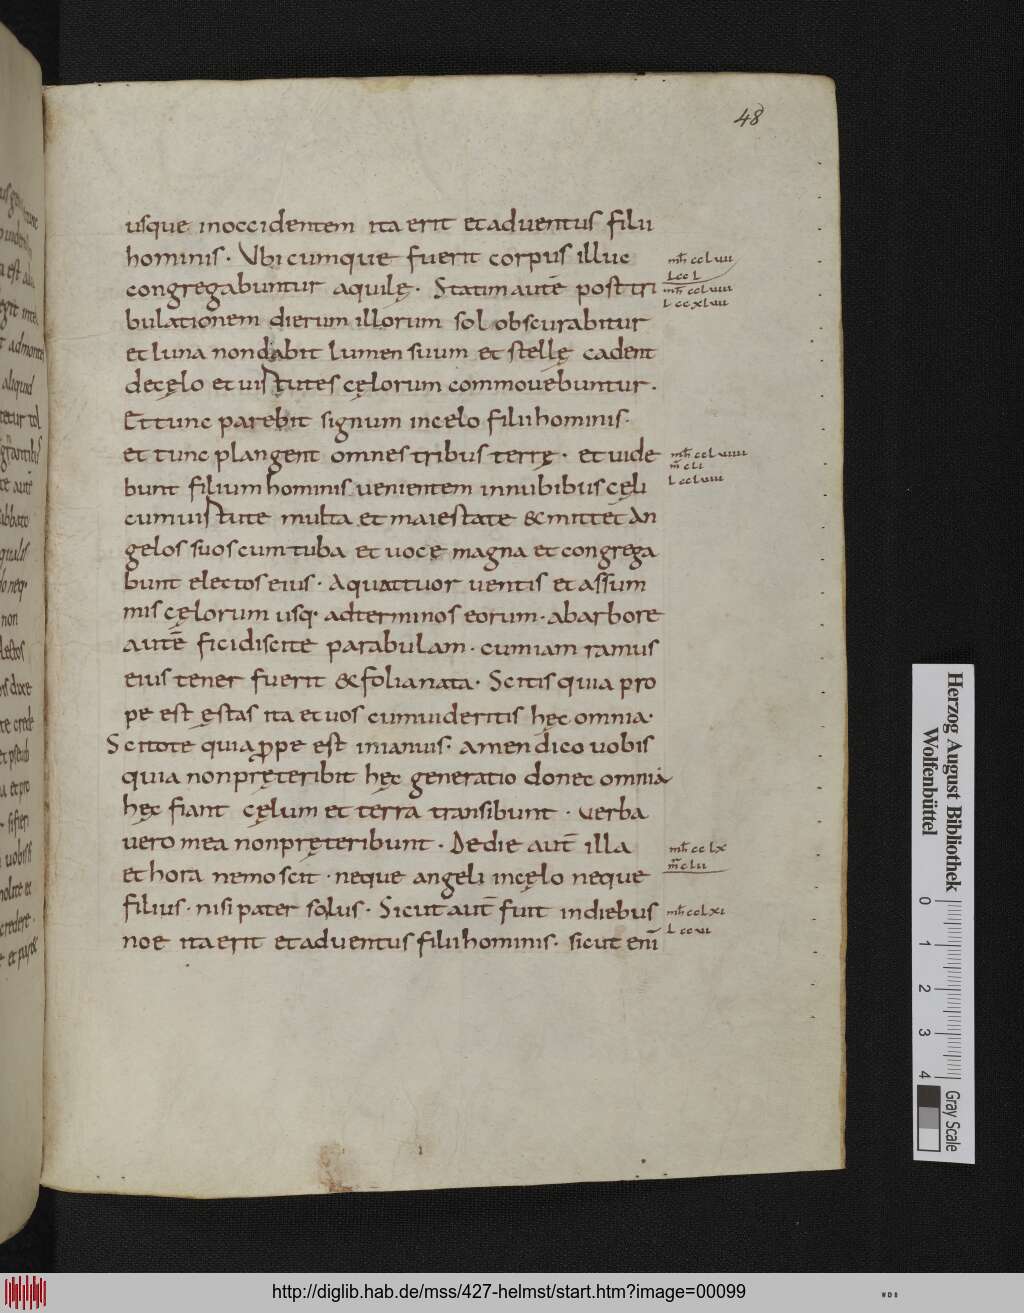 48
usque inoccidentem ita erit et aduentus filii
hominis · Vbi cumque fuerit corpus illuc
congregabuntur aquilę · Statim autē post tri
bulationem dierum illorum sol obscurabitur
et luna non dabit lumen suum et stellę cadent
decęlo et uirtutes cęlorum commouebuntur ·
Et tunc parebit signum incelo filii hominis ·
et tunc plangent omnes tribus terrę · et uide
bunt filium hominis uenientem innubibus cęli
cum uirtute multa et maiestate & mittet an
gelos suos cum tuba et uoce magna et congrega
bunt electos eius · Aquattuor uentis et assum
mis cęlorum usq· adterminos eorum · abarbore
autē fici discite parabulam · cum iam ramus
eius tener fuerit & folia nata · Scitis quia pro
pe est ęstas ita et uos cum uideritis hęc omnia ·
Scitote quia ꝓpe est inianuis · amen dico uobis
quia non pręteribit hęc generatio donec omnia
hęc fiant cęlum et terra transibunt · uerba
uero mea non pręteribunt · De die aut̄ illa
et hora nemo scit · neque angeli incęlo neque
filius · nisi pater solus · Sicut aut̄ fuit indiebus
noe ita erit et aduentus filii hominis · sicut eni̅
Herzog August Bibliothek
Wolfenbüttel
0 1 2 3 4
Gray Scale
http://diglib.hab.de/mss/427-helmst/start.htm?image=00099